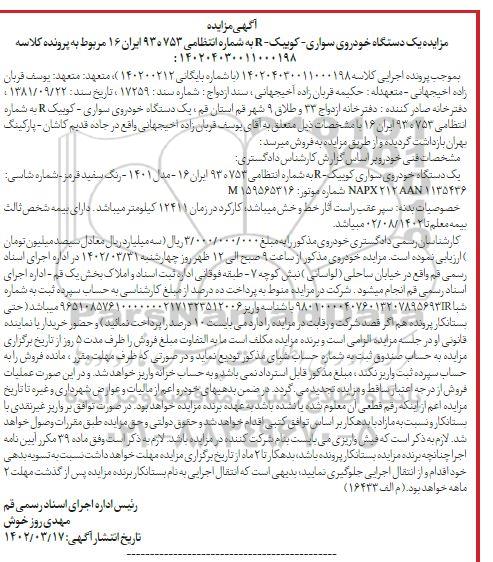 آگهی مزایده
مزایده یک دستگاه خودروی سواری- کوییک- R به شماره انتظامی ۷۵۳ ه ۹۳ ایران ۱۶ مربوط به پرونده کلاسه
۱۴۰۲۰۴۰۳۰۰۱۱۰۰۰۱۹۸ :
بموجب پرونده اجرایی کلاسه ۱۴۰۲۰۴۰۳۰۰۱۱۰۰۰۱۹۸ (با شماره بایگانی ۱۴۰۲۰۰۲۱۲)، متعهد: متعهد: یوسف قربان
زاده اخیجهانی - متعهدله : حکیمه قربان زاده اخیجهانی ، سند ازدواج : شماره سند : ۱۷۲۵۹ ، تاریخ سند : ۱۳۸۱/۰۹/۲۲ ،
دفترخانه صادر کننده : دفترخانه ازدواج ۳۳ و طلاق ۹ شهر قم استان قم ، یک دستگاه خودروی سواری - کوییک R به شماره
انتظامی ۷۵۳ ه ۹۳ ایران ۱۶ با مشخصات ذیل متعلق به آقای یوسف قربان زاده اخیجهانی واقع در جاده قدیم کاشان - پارکینگ
بهران بازداشت گردیده و از طریق مزایده به فروش میرسد:
مشخصات فنی خودرو بر اساس گزارش کارشناس دادگستری:
یک دستگاه خودروی سواری کوییک-R به شماره انتظامی ۷۵۳ ه ۹۳ ایران ۱۶ - مدل ۱۴۰۱ - رنگ سفید قرمز- شماره شاسی:
NAPX۲۱۲AAN۱۱۳۵۴۳۶ شماره موتور: M۱۵۹۵۶۵۳۱۶
خصوصیات بدنه: سپر عقب راست آثار خط و خش میباشد، کارکرد در زمان ۱۲۴۱۱ کیلومتر میباشد . دارای بیمه شخص ثالث
بیمه معلم تا ۰۲/۰۸/۱۴۰۲ میباشد.
کارشناسان رسمی دادگستری خودروی مذکور را به مبلغ ۳/۰۰۰/۰۰۰/۰۰۰ ریال (سه میلیارد ریال معادل سیصد میلیون تومان
) ارزیابی نموده است. مزایده خودروی مذکور از ساعت ۹ صبح الی ۱۲ ظهر روز چهارشنبه ۱۴۰۲/۰۳/۳۱ در اداره اجرای اسناد
رسمی قم واقع در خیابان ساحلی (لواسانی) نبش کوچه ۷ - طبقه فوقانی اداره ثبت اسناد و املاک بخش یک قم - اداره اجرای
اسناد رسمی قم انجام میشود . شرکت در مزایده منوط به پرداخت ده درصد از مبلغ کارشناسی به حساب سپرده ثبت به شماره
شبا می‌باشد (حتی
بستانکار پرونده هم اگر قصد شرکت و رقابت در مزایده را دارد می بایست ۱۰ درصد را پرداخت نمائید) و حضور خریدار یا نماینده
قانونی او در جلسه مزایده الزامی است و برنده مزایده مکلف است ما به التفاوت مبلغ فروش را ظرف مدت ۵ روز از تاریخ برگزاری
مزایده به حساب صندوق ثبت به شماره حساب شبای مذکور تودیع نماید و در صورتی که ظرف مهلت مقرر ، مانده فروش را به
حساب سپرده ثبت واریز نکند ، مبلغ مذکور قابل استرداد نمی باشد و به حساب خزانه واریز خواهد شد. و در این صورت عملیات
فروش از درجه اعتبار ساقط و مزایده تجدید می گردد. در ضمن بدهیهای خودرو اعم از مالیات و عوارض شهرداری و غیره تا تاریخ
مزایده اعم از اینکه رقم قطعی آن معلوم شده یا نشده باشد به عهده برنده مزایده خواهد بود. در صورت توافق بر واریز غیرنقدی با
بستانکار و نسبت به مازاد بدهکار بر اساس توافق کتبی اقدام خواهد شد و حقوق دولتی و حق مزایده طبق مقررات وصول خواهد
شد. لازم به ذکر است که فیش واریزی می بایست بنام شرکت کننده در مزایده باشد. لازم به ذکر است وفق ماده ۳۹ مکرر آیین نامه
اجرا چنانچه برنده مزایده بستانکار پرونده باشد، بدهکار تا ۲ ماه از تاریخ برگزاری مزایده مهلت خواهد داشت نسبت به تسویه بدهی
خود اقدام و از انتقال اجرایی جلوگیری نمایید، بدیهی است که انتقال اجرایی به نام بستانکار برنده مزایده پس از گذشت مهلت ۲
ماهه خواهد بود. (م الف ۱۶۴۳۳)
رئیس اداره اجرای اسناد رسمی قم
مهدی روز خوش
تاریخ انتشار آگهی: ۱۴۰۲/۰۳/۱۷